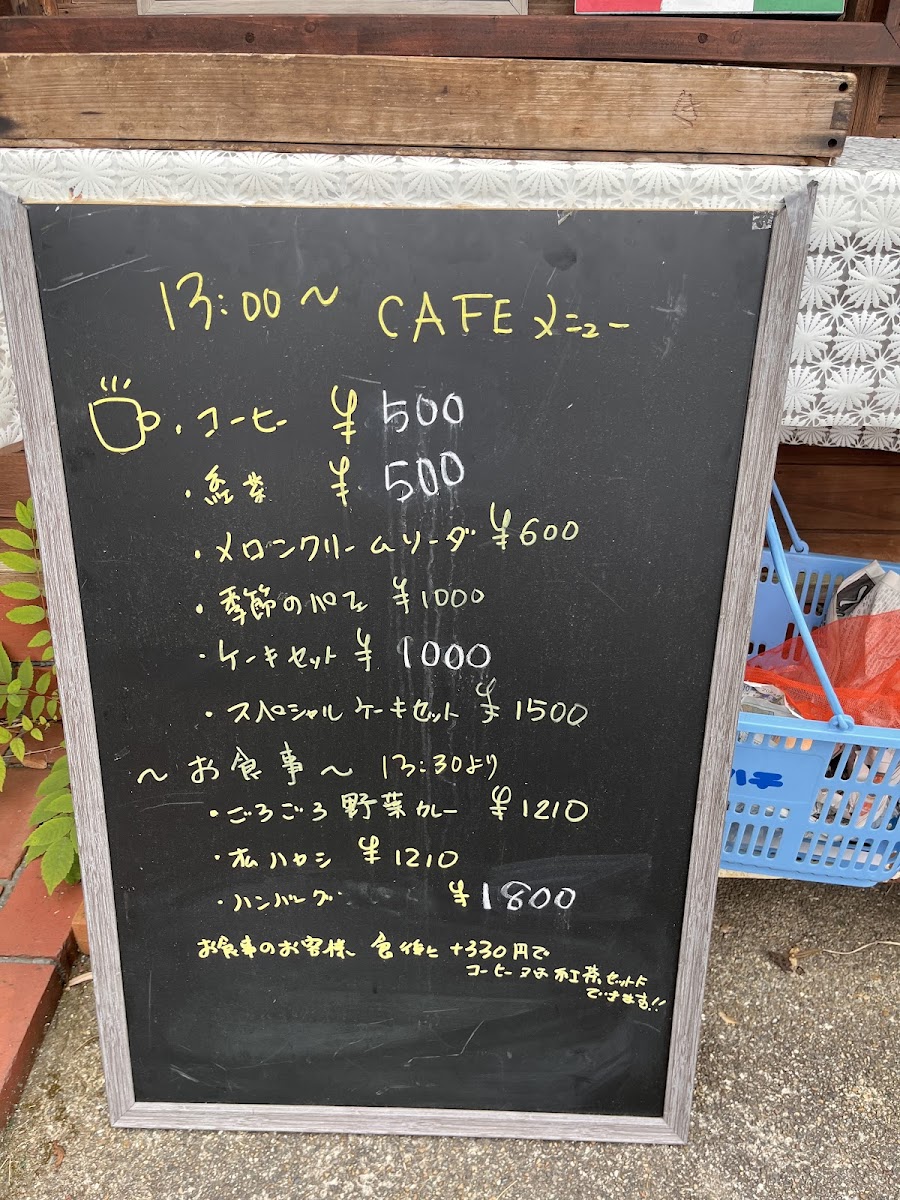 13:00〜 CAFE メニュー
・コーヒー ¥500
・紅茶 ¥500
・メロンクリームソーダ ¥600
・季節のパフェ ¥1000
・ケーキセット ¥1000
・スペシャルケーキセット ¥1500
〜お食事〜 13:30より
・ごろごろ野菜カレー ¥1210
・ハヤシ ¥1210
・ハンバーグ ¥1800
お食事のお客様 食後に +330円で
コーヒー又は紅茶セットに
できます!!